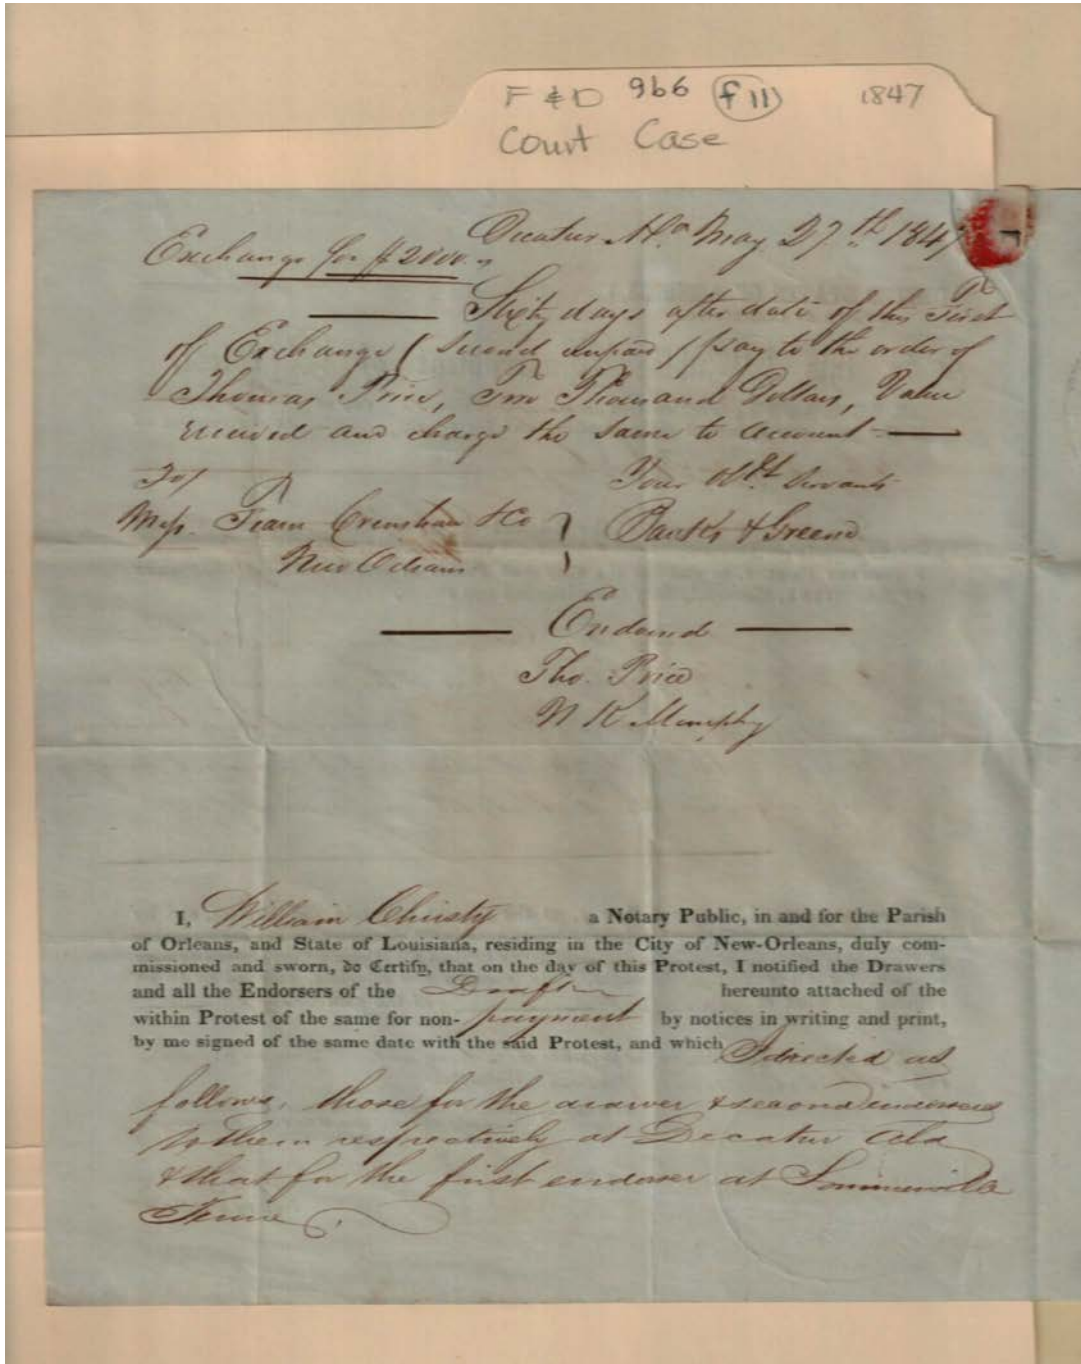 F & D 966 f 11 1847
Court Case
Decatur Ala May 27th 1847
Exchange for $2000.
Sixty days after date of this First
of Exchange (Second unpaid) pay to the order of
Thomas Price, Two Thousand Dollars, Value
received and charge the same to account
To/ Your Obt. Servants
Mess. Fearn Crenshaw & Co Banks & Greene
New Orleans
Endorsed
Tho. Price
N K Murphy
I, William Christy a Notary Public, in and for the Parish
of Orleans, and State of Louisiana, residing in the City of New-Orleans, duly com-
missioned and sworn, do Certify, that on the day of this Protest, I notified the Drawers
and all the Endorsers of the Draft hereunto attached of the
within Protest of the same for non-payment by notices in writing and print,
by me signed of the same date with the said Protest, and which I directed as
follows, those for the drawer & second endorser
to them respectively at Decatur Ala
& that for the first endorser at Sommerville
Tenne